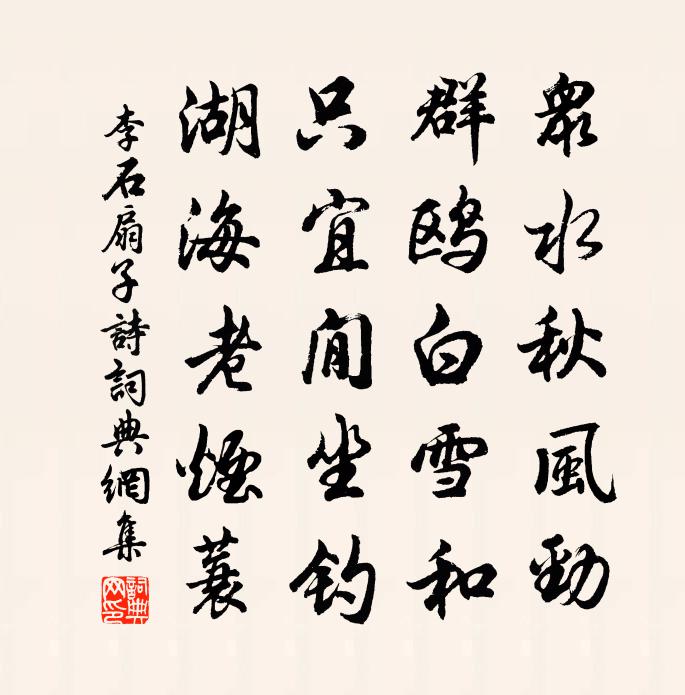 眾水秋風勁
群鷗白雪和
只宜閒坐釣
湖海老煙蓑
李石扇子詩詞典網集
詞典網印